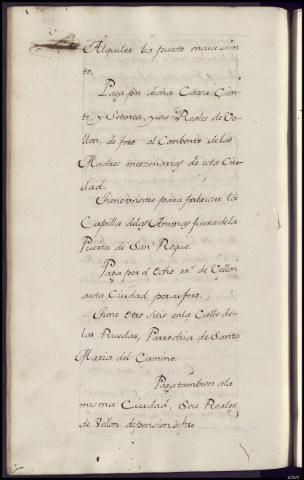 Alquiler ha puesto en su asien
to.
Paga por dicha Cassa Cien
to, y Setenta, y seis Reales de Ve
llon, de foro al Combento de las
Madres mercenarias de esta Ciu
dad.
Tiene un sitio para fabricar la
Capilla de las Animas fuera de la
Puerta de San Roque.
Paga por el Ocho rrs. de Vellon
a esta Ciudad por su foro.
Tiene Otro Sitio en la Calle de
las Ruedas, Parrochia de Santa
Maria del Camino.
Paga tambien a la
misma Ciudad, Seis Reales
de Vellon de pension de foro